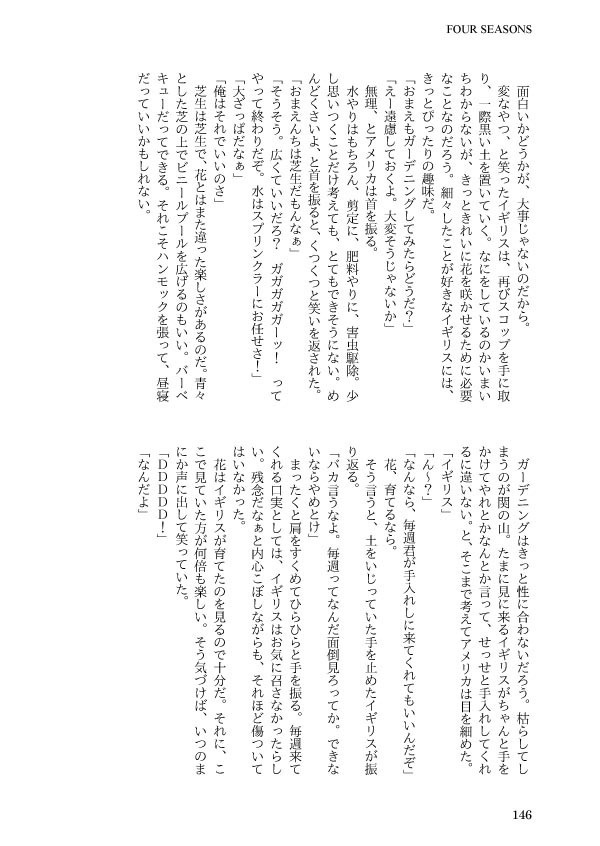 FOUR SEASONS
面白いかどうかが、大事じゃないのだから。
変なやつ、と笑ったイギリスは、再びスコップを手に取
り、一際黒い土を置いていく。なにをしているのかいまい
ちわからないが、きっときれいに花を咲かせるために必要
なことなのだろう。細々したことが好きなイギリスには、
きっとぴったりの趣味だ。
「おまえもガーデニングしてみたらどうだ？」
「えー遠慮しておくよ。大変そうじゃないか」
無理、とアメリカは首を振る。
水やりはもちろん、剪定に、肥料やりに、害虫駆除。少
し思いつくことだけ考えても、とてもできそうにない。め
んどくさいよ、と首を振ると、くつくつと笑いを返された。
「おまえんちは芝生だもんなぁ」
「そうそう。広くていいだろ？　ガガガガガーッ！　って
やって終わりだぞ。水はスプリンクラーにお任せさ！」
「大ざっぱだなぁ」
「俺はそれでいいのさ」
芝生は芝生で、花とはまた違った楽しさがあるのだ。青々
とした芝の上でビニールプールを広げるのもいい。バーベ
キューだってできる。それこそハンモックを張って、昼寝
だっていいかもしれない。
ガーデニングはきっと性に合わないだろう。枯らしてし
まうのが関の山。たまに見に来るイギリスがちゃんと手を
かけてやれとかなんとか言って、せっせと手入れしてくれ
るに違いない。と、そこまで考えてアメリカは目を細めた。
「イギリス」
「ん〜？」
「なんなら、毎週君が手入れしに来てくれてもいいんだぞ」
花、育てるなら。
そう言うと、土をいじっていた手を止めたイギリスが振
り返る。
「バカ言うなよ。毎週ってなんだ面倒見ろってか。できな
いならやめとけ」
まったくと肩をすくめてひらひらと手を振る。毎週来て
くれる口実としては、イギリスはお気に召さなかったらし
い。残念だなぁと内心こぼしながらも、それほど傷ついて
はいなかった。
花はイギリスが育てたのを見るので十分だ。それに、こ
こで見ていた方が何倍も楽しい。そう気づけば、いつのま
にか声に出して笑っていた。
「ＤＤＤＤＤ！」
「なんだよ」
146